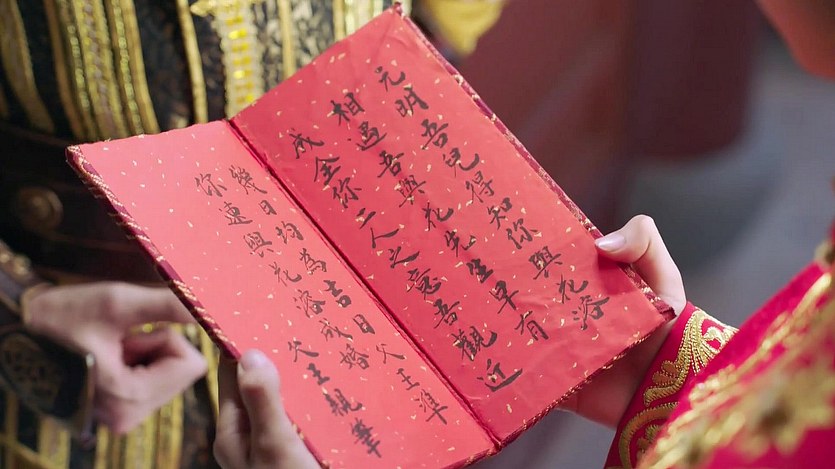 元明吾兒得知你與花溶
相遇吾與花先生早有
成全你二人之意吾觀近
幾日均為吉日父王準
你速與花溶成婚 父王親筆